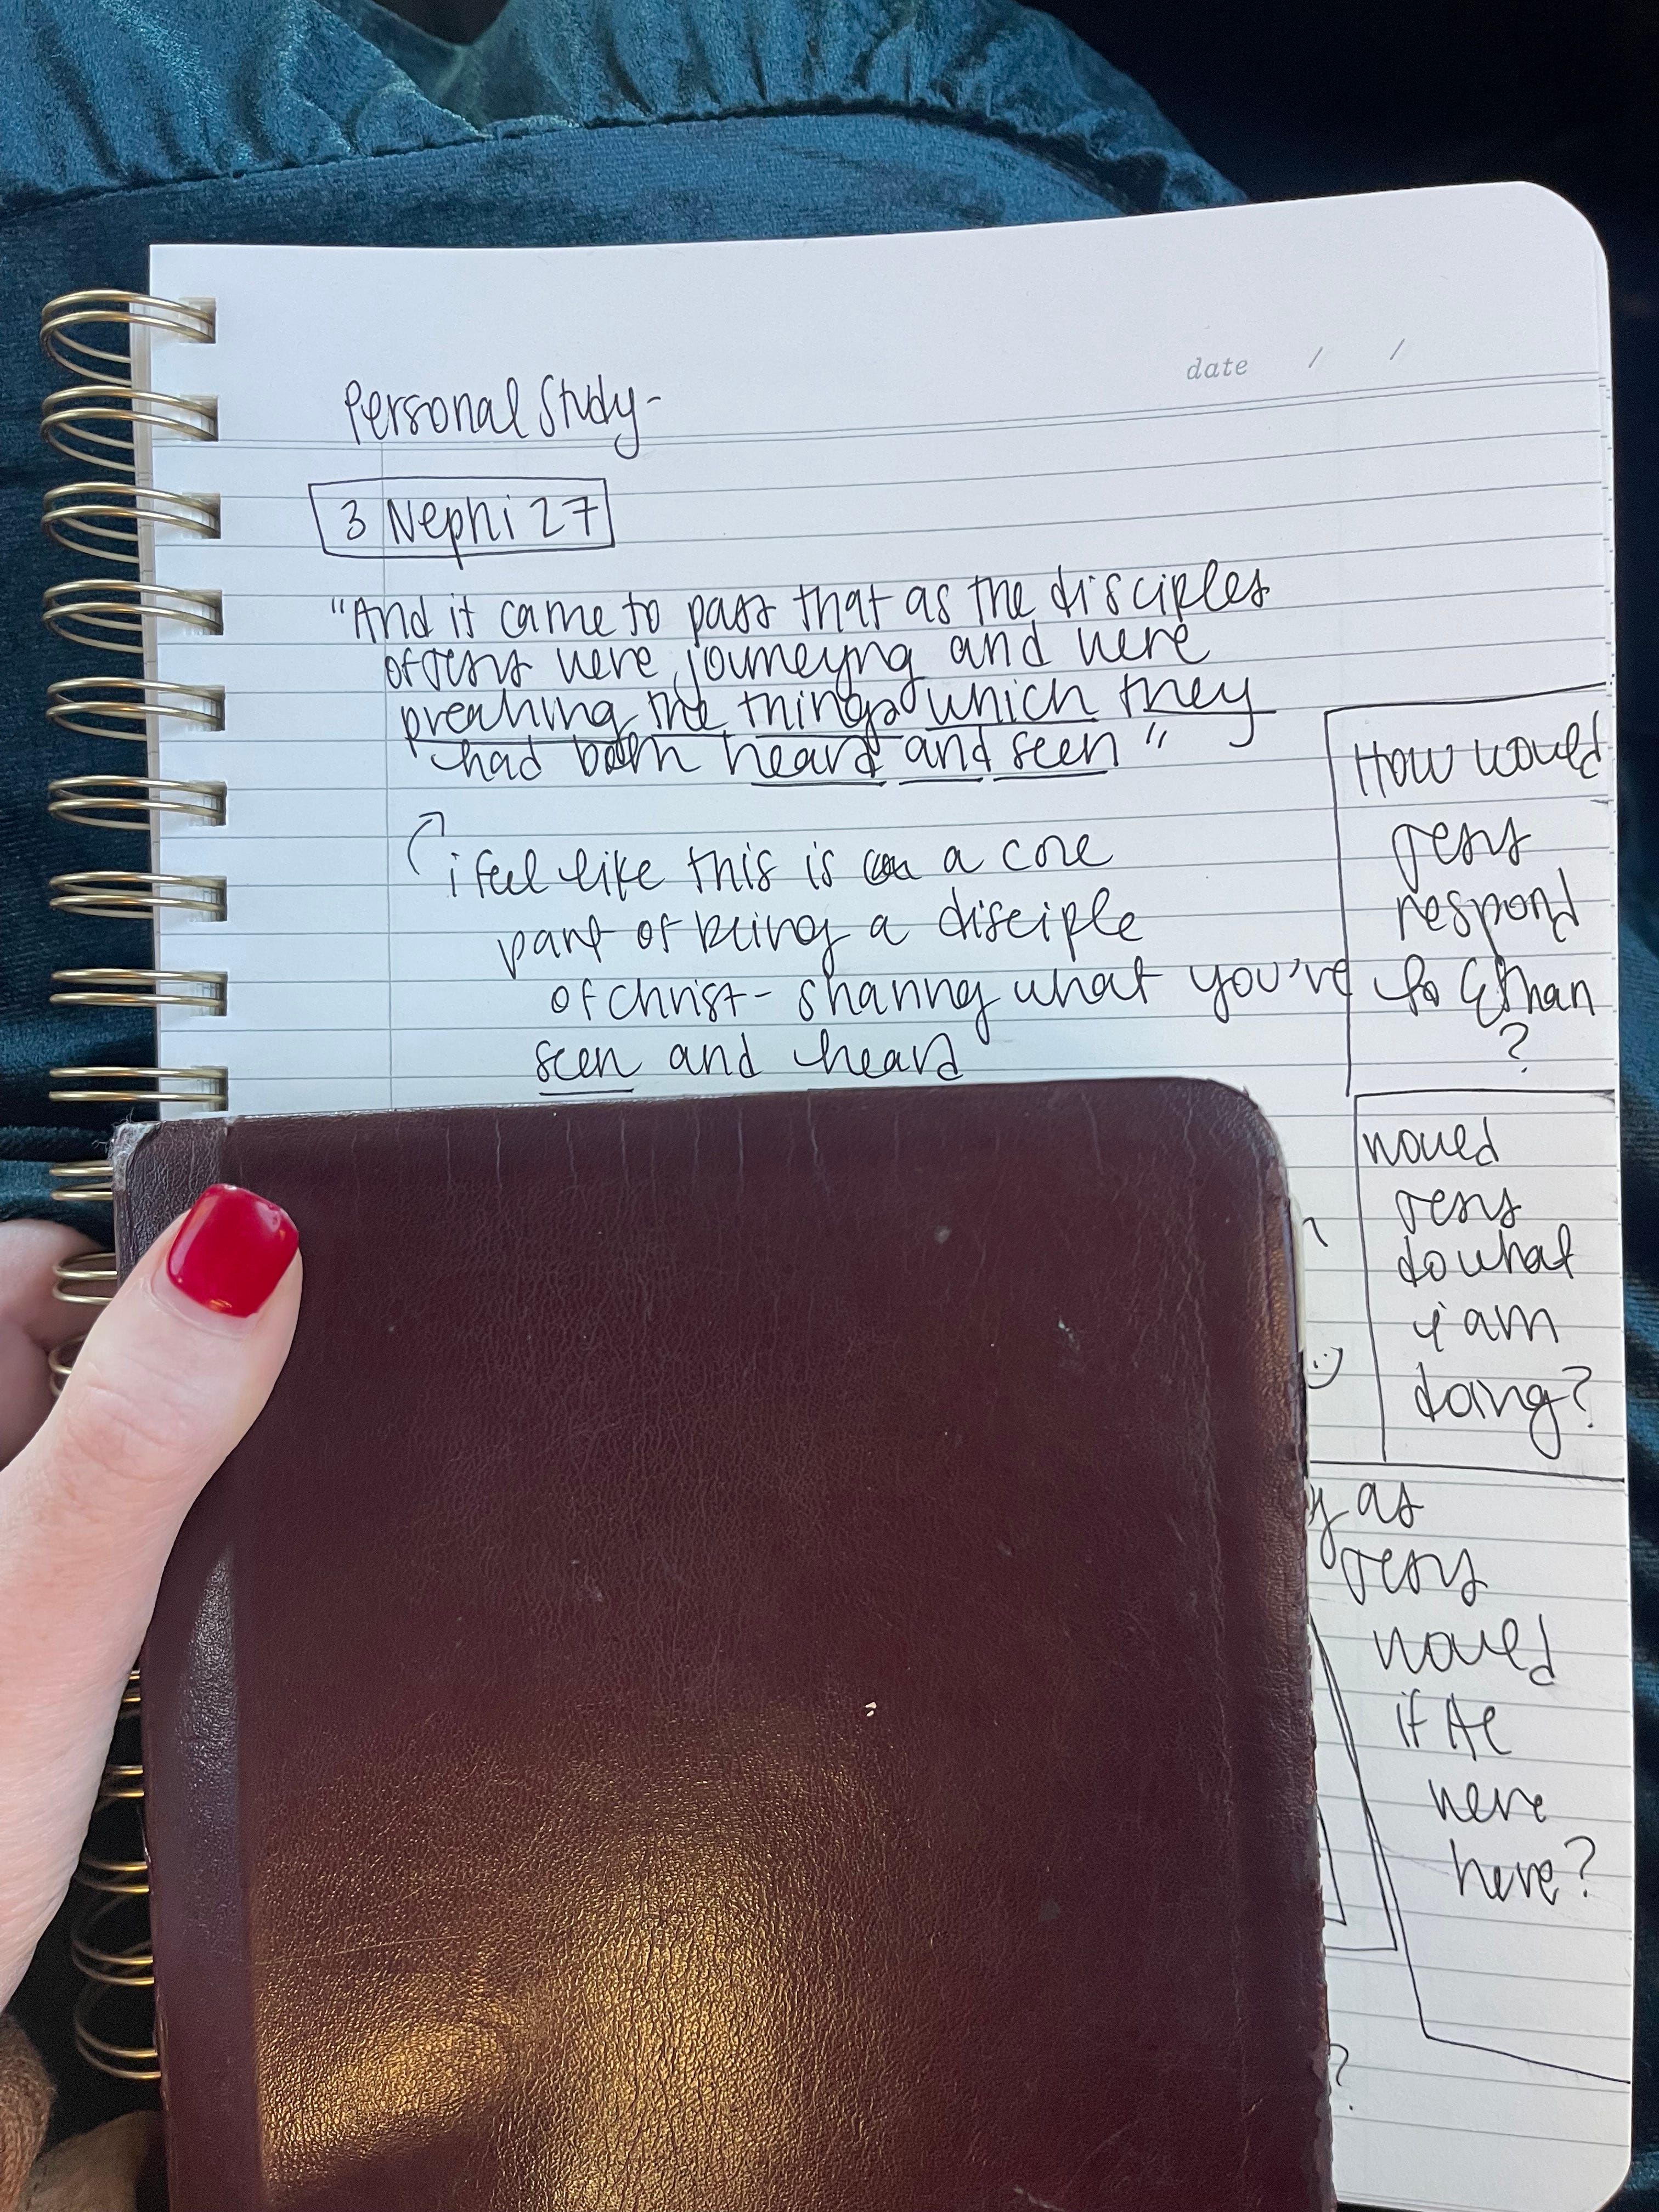 date / /
Personal Study-
3 Nephi 27
"And it came to pass that as the disciples
of Jesus were journeying and were
preaching the things which they
had both heard and seen"
i feel like this is a core
part of being a disciple
of Christ- sharing what you've
seen and heard
How would
Jesus
respond
to Ethan
?
would
Jesus
do what
i am
doing?
y as
Jesus
would
if He
were
here?
?